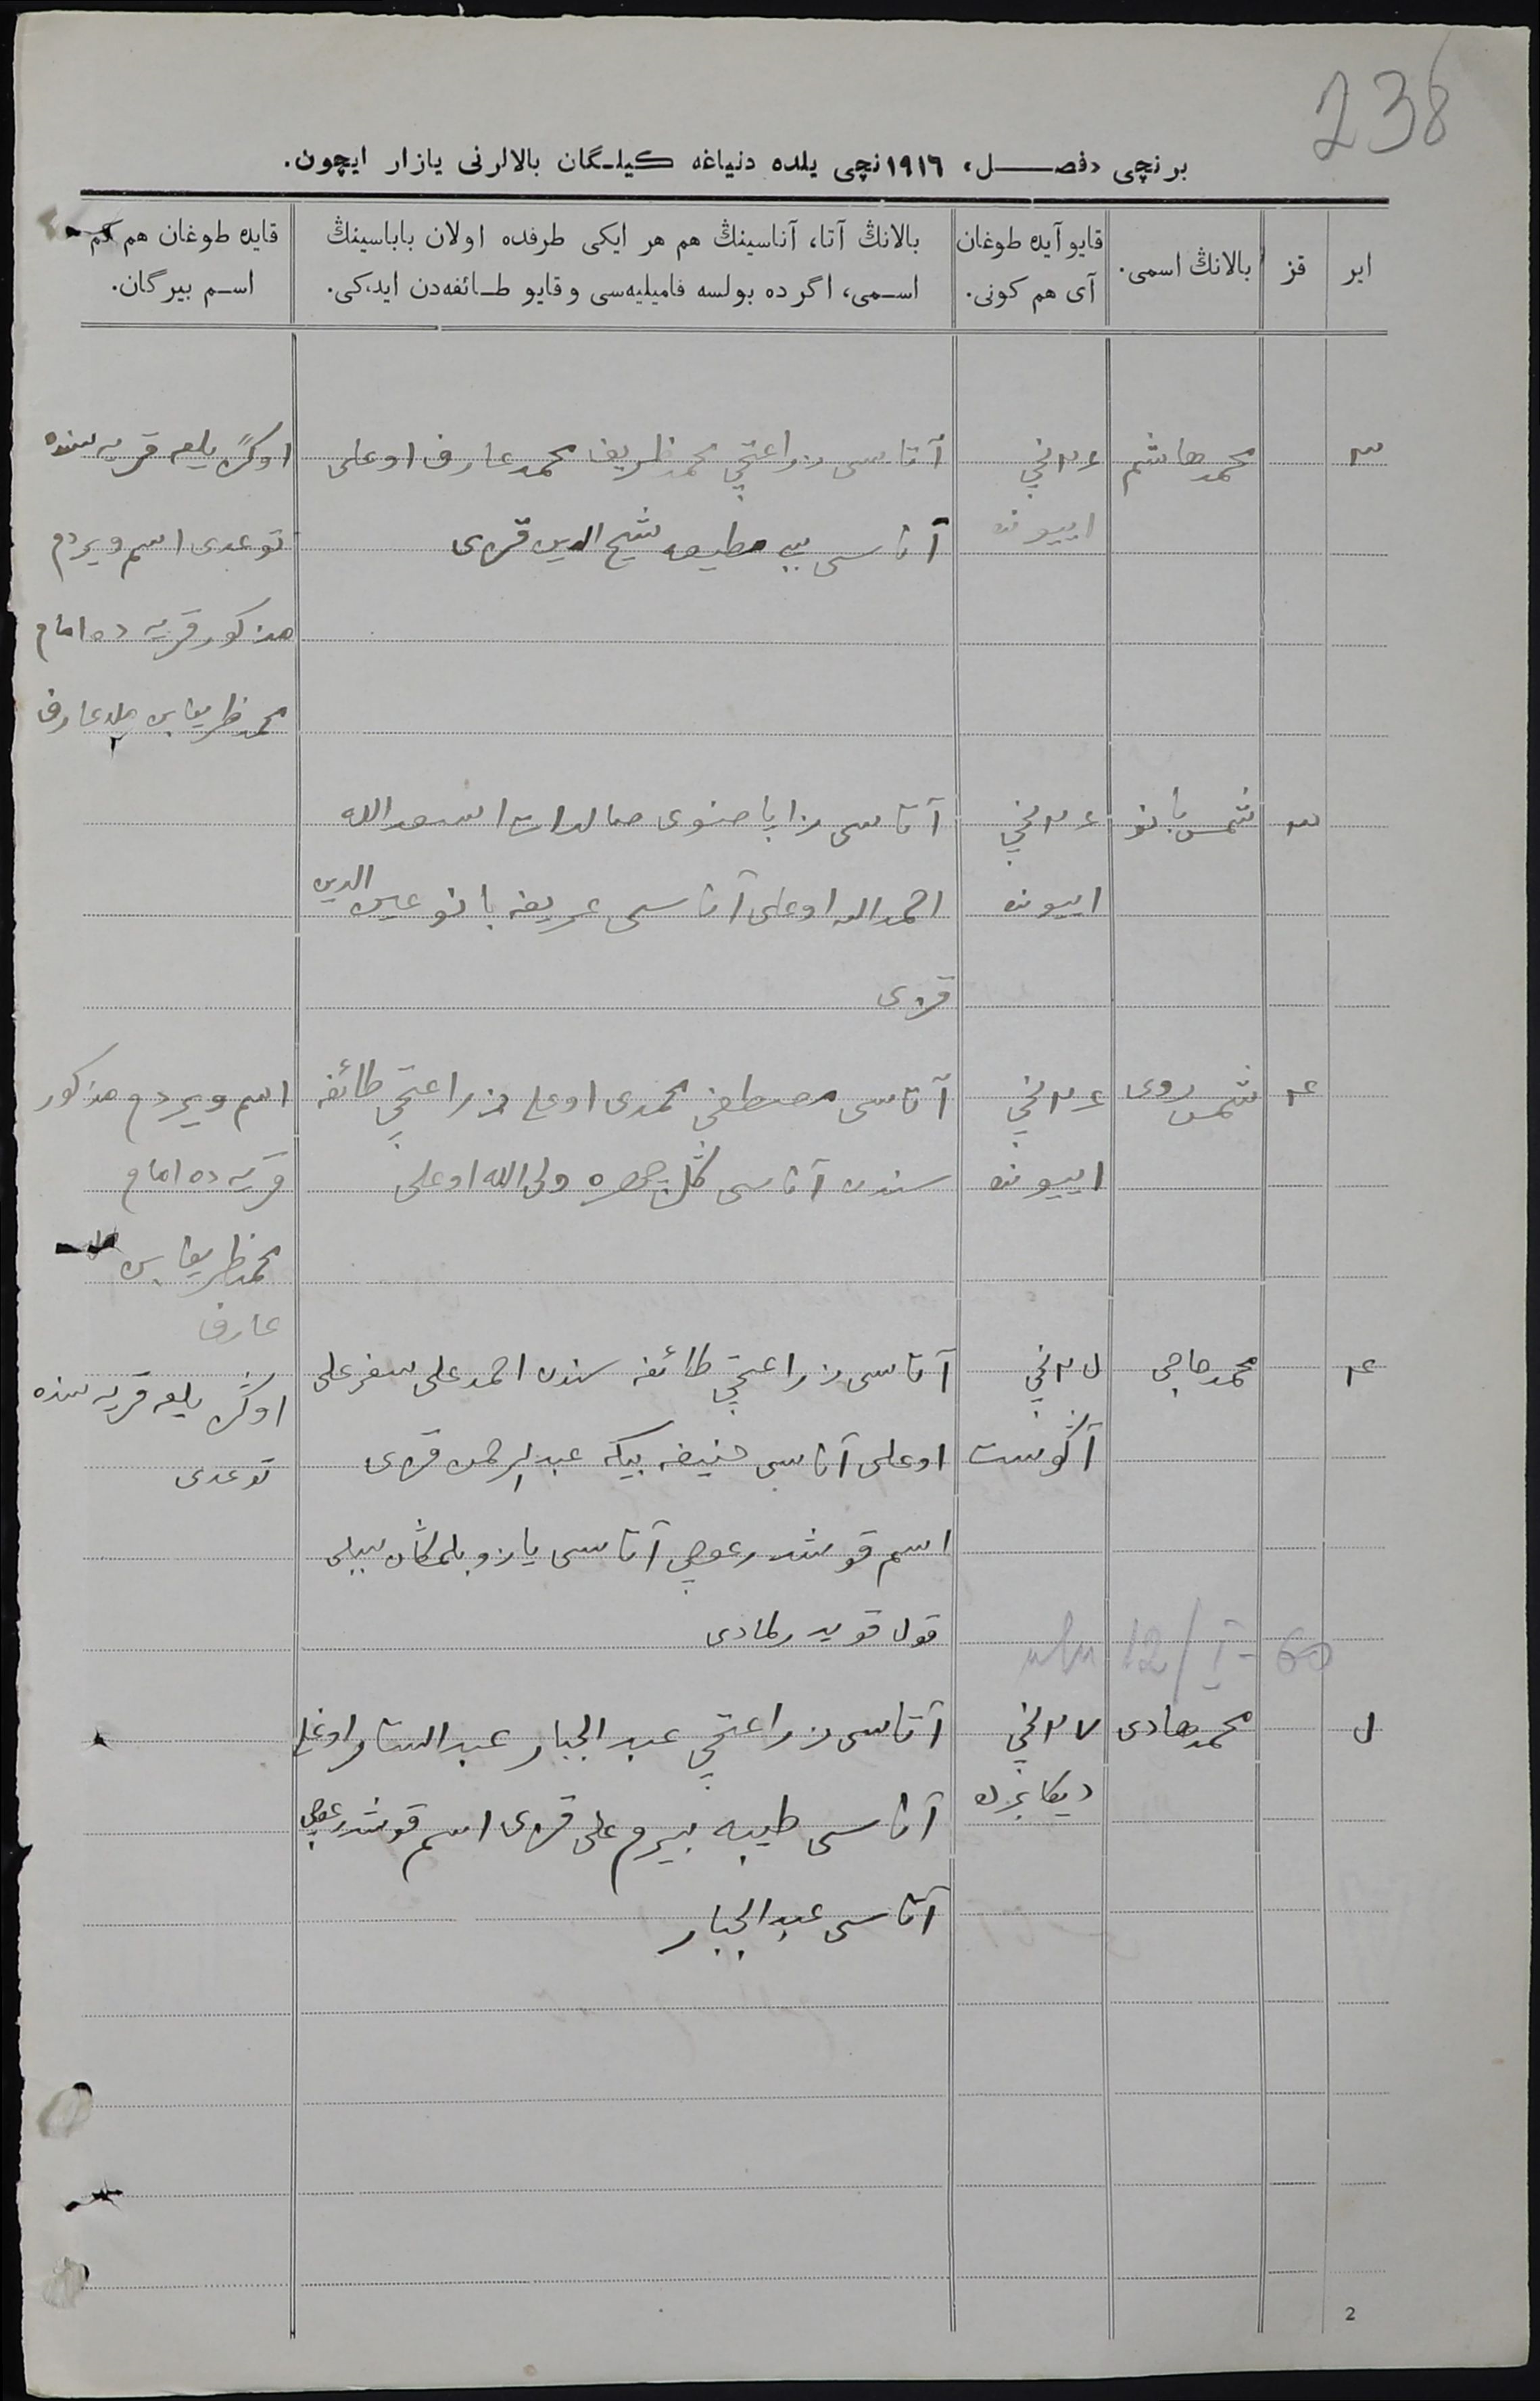 238
برنچی «فصـــل» ١٩١٦نچی یلده دنیاغه کیلـگان بالالرنی یازار ایچون.
ایر
قز
بالانڭ اسمی.
قایو آیده طوغان
آی هم کونی.
بالانڭ آتا، آناسینڭ هم هر ایکی طرفده اولان باباسینڭ
اسـمی، اگر ده بولسه فامیلیه‌سی و قایو طـائفه‌دن ایدکی.
قایده طوغان هم کم
اسـم بیرگان.
٣
محمد هاشم
٢٤نچی
اییونه
آتاسی زراعتچی محمد ظریف محمد عارف اوغلی
آناسی بی مطیعه شیخ الدین قزی
اوڭر یلعه قریه سنده
توغدی اسم ویردم
مذکور قریه ده امام
محمد ظریف بن محمد عارف
٣
شمس بانو
٢٤نچی
اییونه
آتاسی زاپاصنوی صالدات اسعد الله
احمد الله اوغلی آناسی عریفه بانو عین الدین
قزی
٤
شمس روی
٢٤نچی
اییونه
آتاسی مصطفی محمدی اوغلی زراعتچی طائفه
سندن آناسی گل چهره ولی الله اوغلی
اسم ویردم مذکور
قریه ده امام
محمد ظریف بن
عارف
٤
محمد حاجی
٢٥نچی
آڭوست
آتاسی زراعتچی طائفه سندن احمد علی سفر علی
اوغلی آناسی حنیفه بیکه عبد الرحمن قزی
اسم قوشدرغوچی آتاسی یازو بلمڭان سببلی
قول قویدرلمادی
اوڭر یلعه قریه سنده
توغدی
12/I-60
٥
محمد هادی
٢٧نچی
دیکابرده
آتاسی زراعتچی عبد الجبار عبد الستار اوغلی
آناسی طیبه بیرم علی قزی اسم قوشدرغوچی
آتاسی عبد الجبار
2